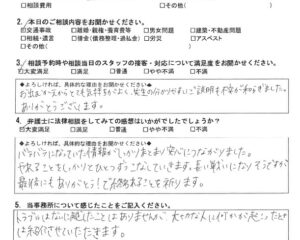 □相談費用 □その他(
2. ／本日のご相談内容をお聞かせください。
☑交通事故 □離婚・親権・養育費等 □男女問題 □建築・不動産問題
□相続・遺言 □借金(債務整理・過払金) □労災 □アスベスト
□その他(
3. ／相談予約時や相談当日のスタッフの接客・対応について満足度をお聞かせください。
☑大変満足 □満足 □普通 □やや不満 □不満
◆よろしければ、具体的な理由をお聞かせください
お出むかえからとても気持ちがよく、先生の分かりやすいご説明も不安が和らぎました。
ありがとうございます。
4. 弁護士に法律相談をしてみての感想はいかがでしたでしょうか?
☑大変満足 □満足 □普通 □やや不満 □不満
◆よろしければ、具体的な理由をお聞かせください
バラバラになっていた情報がしっかりまとまり安心につながりました。
やれることをしっかりとひとつずつこなしていきます。長い戦いになりそうですが
最後にもありがとう!で終われることを祈ります。
5. 当事務所について感じたことをお聞かせください。
トラブルはないに越したことはありませんが、大切な人に何かが起こったとき
は紹介させていただきます。